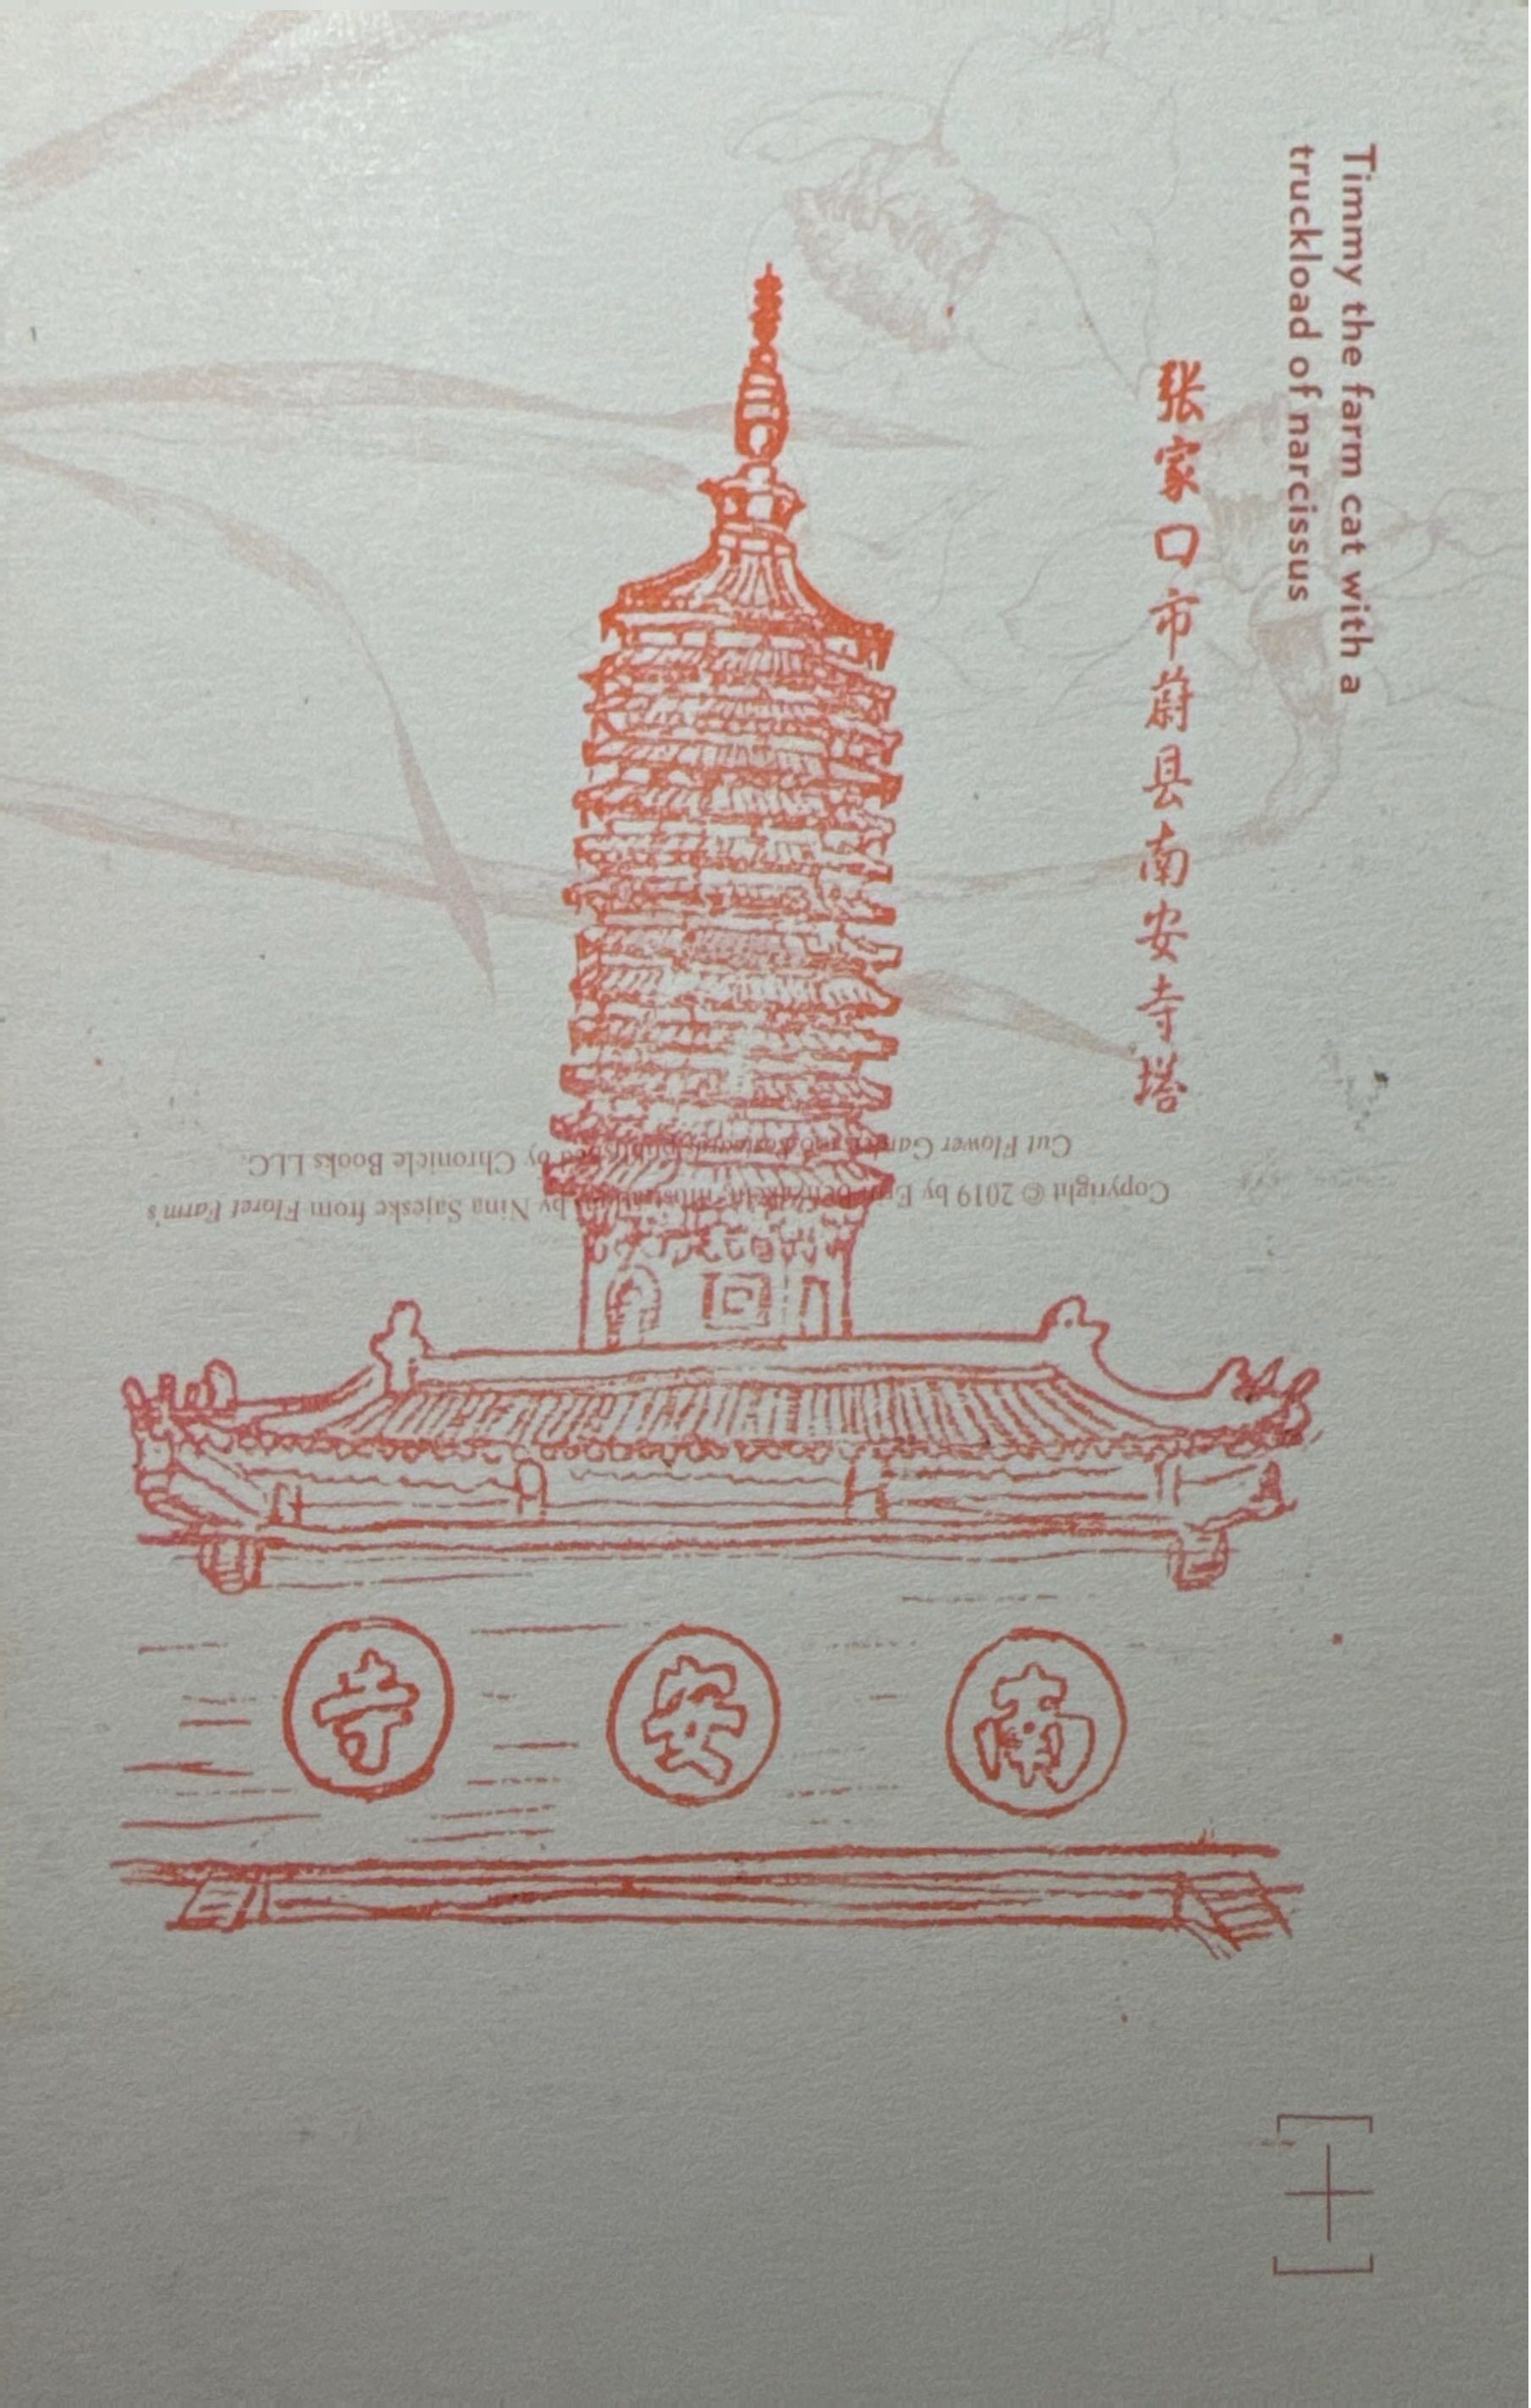 Timmy the farm cat with a
truckload of narcissus
张家口市蔚县南安寺塔
Copyright © 2019 by illustrations by Nina Sajeske from Floret Farm's
Cut Flower Garden published by Chronicle Books LLC.
南安寺